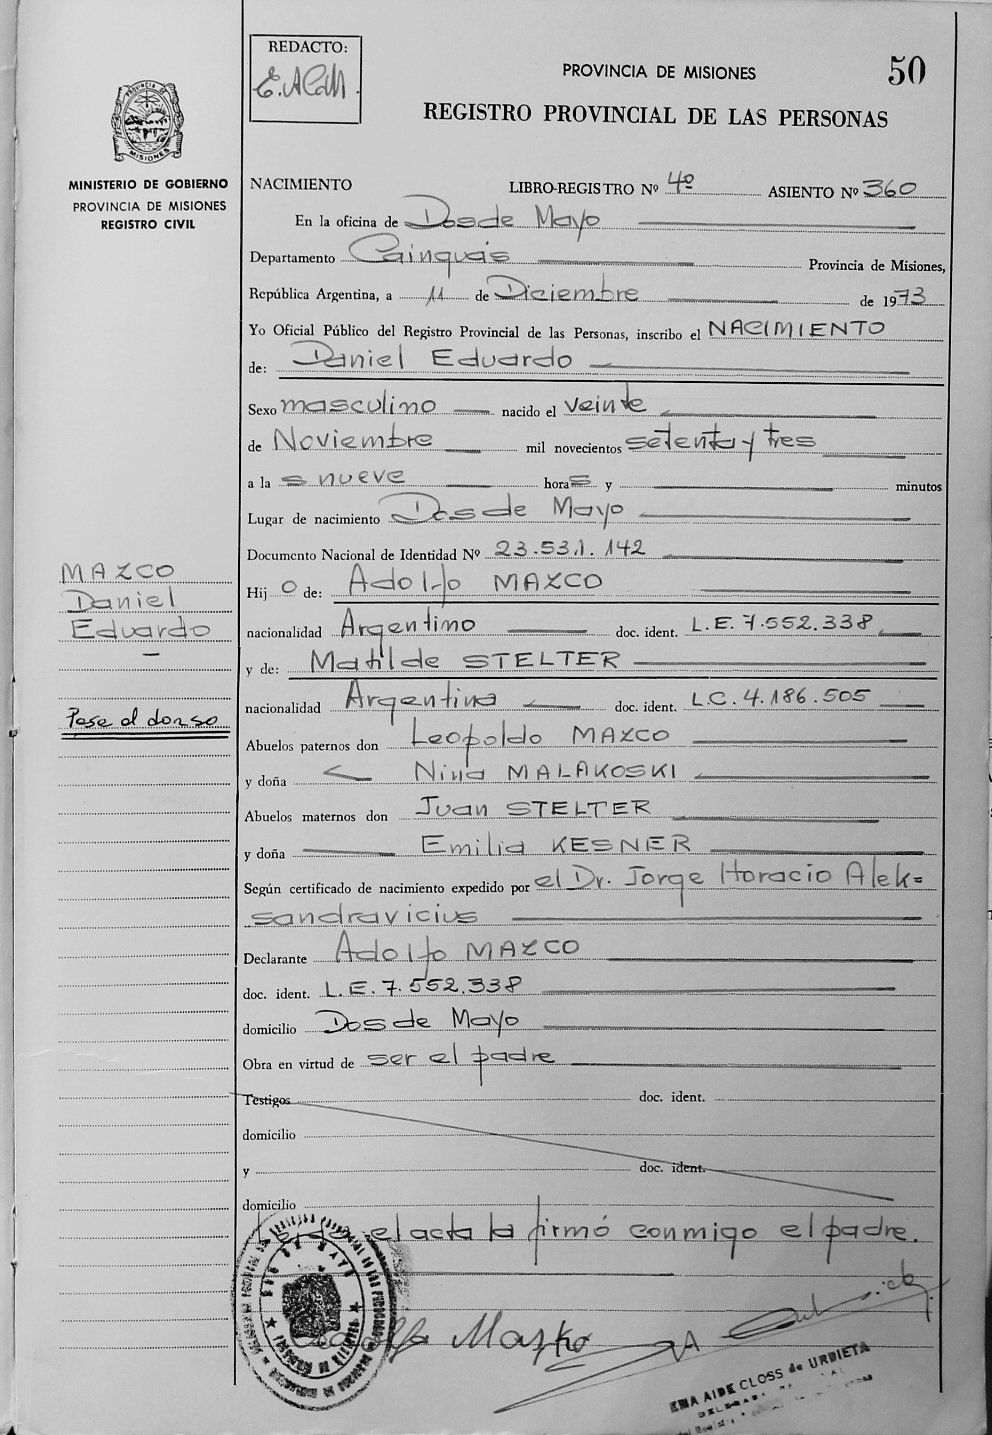 REDACTO:
PROVINCIA DE MISIONES
50
REGISTRO PROVINCIAL DE LAS PERSONAS
MISIONES
MINISTERIO DE GOBIERNO
PROVINCIA DE MISIONES
REGISTRO CIVIL
NACIMIENTO LIBRO-REGISTRO Nº 4º ASIENTO Nº 360
En la oficina de Dos de Mayo
Departamento Cainguás Provincia de Misiones,
República Argentina, a 11 de Diciembre de 1973
Yo Oficial Público del Registro Provincial de las Personas, inscribo el NACIMIENTO
de: Daniel Eduardo
Sexo masculino nacido el veinte
de Noviembre mil novecientos setenta y tres
a la s nueve horas y minutos
Lugar de nacimiento Dos de Mayo
Documento Nacional de Identidad Nº 23.531.142
MAZCO
Daniel
Eduardo
Hij o de: Adolfo MAZCO
nacionalidad Argentino doc. ident. L.E. 7.552.338
y de: Matilde STELTER
nacionalidad Argentina doc. ident. L.C. 4.186.505
Pase al dorso
Abuelos paternos don Leopoldo MAZCO
y doña Nina MALAKOSKI
Abuelos maternos don Juan STELTER
y doña Emilia KESNER
Según certificado de nacimiento expedido por el Dr. Jorge Horacio Alek=
sandravicius
Declarante Adolfo MAZCO
doc. ident. L.E. 7.552.338
domicilio Dos de Mayo
Obra en virtud de ser el padre
Testigos doc. ident.
domicilio
y doc. ident.
domicilio
el acta la firmó conmigo el padre.
Mazko
EMA AIDE CLOSS de URDIETA